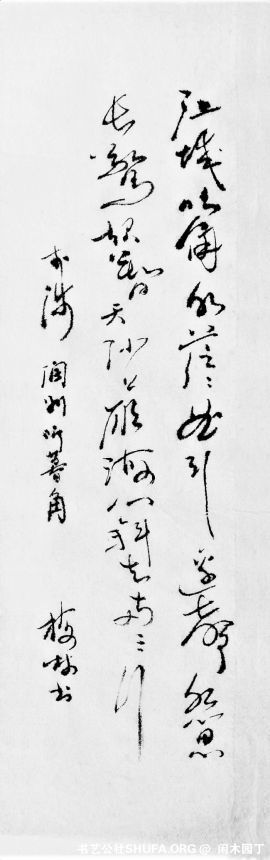 江城吹角水茫〻曲引邊聲怨思
长驚起暮天沙上雁海门斜去两三行
李涉 润州听暮角 梅林书
书艺公社SHUFA.ORG @ 闲木园丁